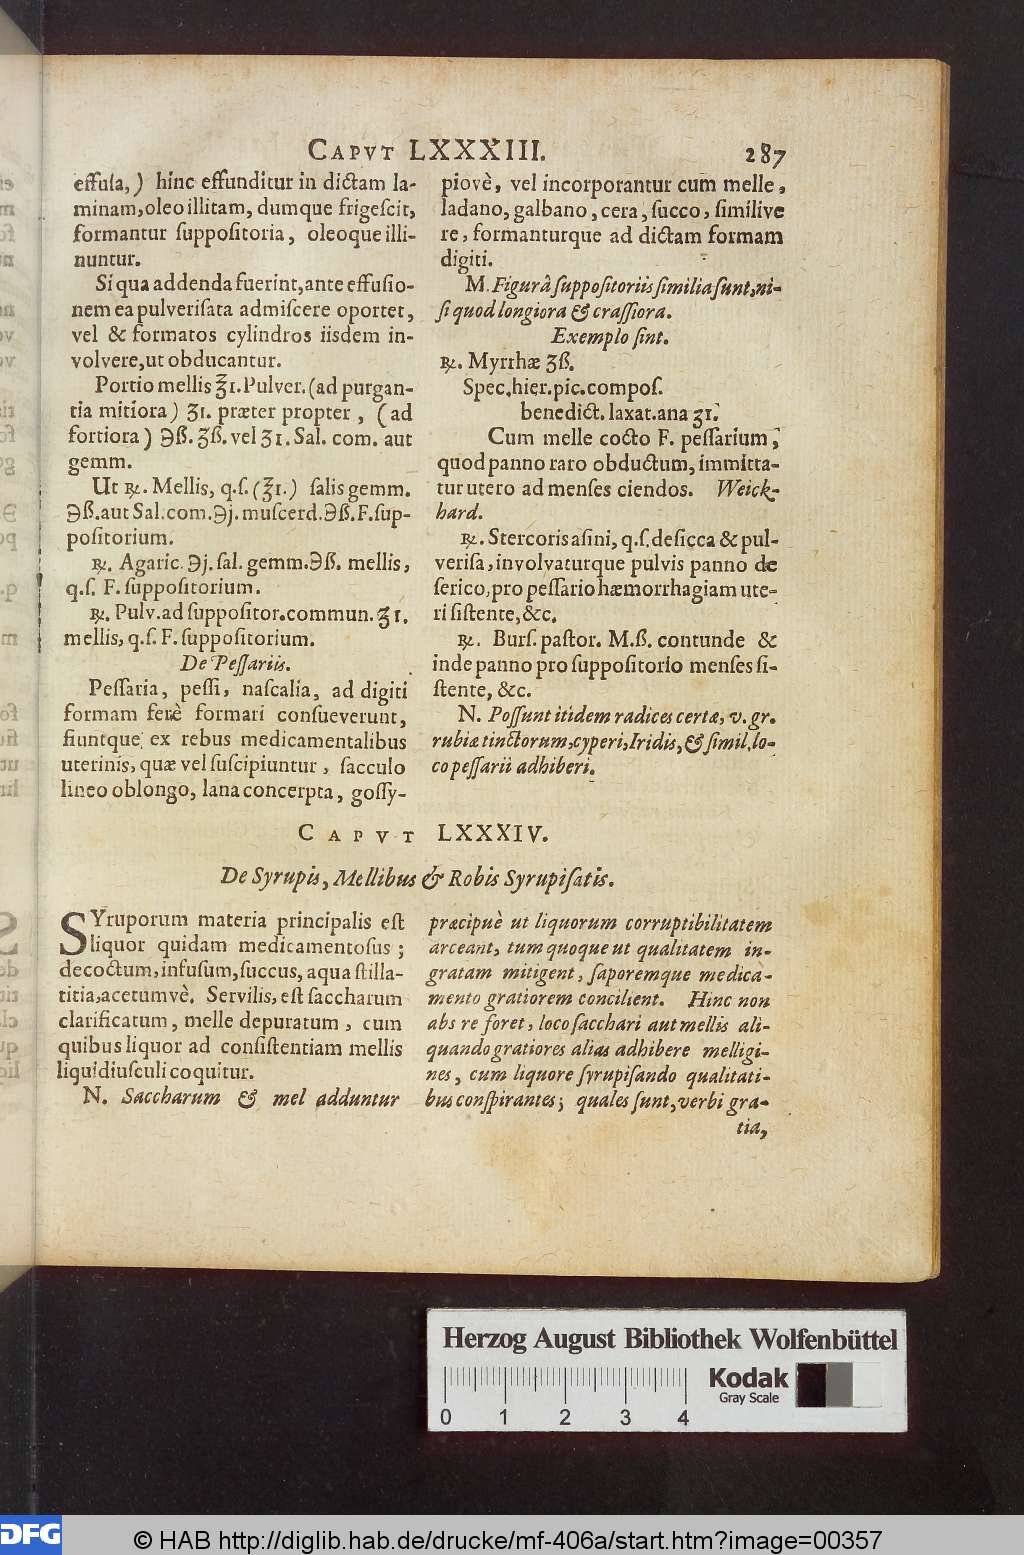 CAPVT LXXXIII. 287
effusa,) hinc effunditur in dictam la-
minam, oleo illitam, dumque frigescit,
formantur suppositoria, oleoque illi-
nuntur.
Si qua addenda fuerint, ante effusio-
nem ea pulverisata admiscere oportet,
vel & formatos cylindros iisdem in-
volvere, ut obducantur.
Portio mellis ℥1. Pulver. (ad purgan-
tia mitiora) ʒ1. præter propter, (ad
fortiora) ℈ß. ʒß. vel ʒ1. Sal. com. aut
gemm.
Ut ℞. Mellis, q.s. (℥1.) salis gemm.
℈ß. aut Sal. com. ℈j. muscerd. ℈ß. F. sup-
positorium.
℞. Agaric. ℈j. sal. gemm. ℈ß. mellis,
q.s. F. suppositorium.
℞. Pulv. ad suppositor. commun. ʒ1.
mellis, q.s. F. suppositorium.
De Pessariis.
Pessaria, pessi, nascalia, ad digiti
formam ferè formari consueverunt,
fiuntque ex rebus medicamentalibus
uterinis, quæ vel suscipiuntur, sacculo
lineo oblongo, lana concerpta, gossy-
piovè, vel incorporantur cum melle,
ladano, galbano, cera, succo, similive
re, formanturque ad dictam formam
digiti.
M. Figurâ suppositoriis similia sunt, ni-
si quod longiora & crassiora.
Exemplo sint.
℞. Myrrhæ ʒß.
Spec. hier. pic. compos.
benedict. laxat. ana ʒ1.
Cum melle cocto F. pessarium,
quod panno raro obductum, immitta-
tur utero ad menses ciendos. Weick-
hard.
℞. Stercoris asini, q.s. desicca & pul-
verisa, involvaturque pulvis panno de
serico, pro pessario hæmorrhagiam ute-
ri sistente, &c.
℞. Burs. pastor. M.ß. contunde &
inde panno pro suppositorio menses si-
stente, &c.
N. Possunt itidem radices certæ, v. gr.
rubiæ tinctorum, cyperi, Iridis, & simil. lo-
co pessarii adhiberi.
CAPVT LXXXIV.
De Syrupis, Mellibus & Robis Syrupisatis.
SYruporum materia principalis est
liquor quidam medicamentosus;
decoctum, infusum, succus, aqua stilla-
titia, acetumvè. Servilis, est saccharum
clarificatum, melle depuratum, cum
quibus liquor ad consistentiam mellis
liquidiusculi coquitur.
N. Saccharum & mel adduntur
præcipuè ut liquorum corruptibilitatem
arceant, tum quoque ut qualitatem in-
gratam mitigent, saporemque medica-
mento gratiorem concilient. Hinc non
abs re foret, loco sacchari aut mellis ali-
quando gratiores alias adhibere melligi-
nes, cum liquore syrupisando qualitati-
bus conspirantes; quales sunt, verbi gra-
tia,
Herzog August Bibliothek Wolfenbüttel
Kodak
Gray Scale
0 1 2 3 4
DFG
© HAB http://diglib.hab.de/drucke/mf-406a/start.htm?image=00357